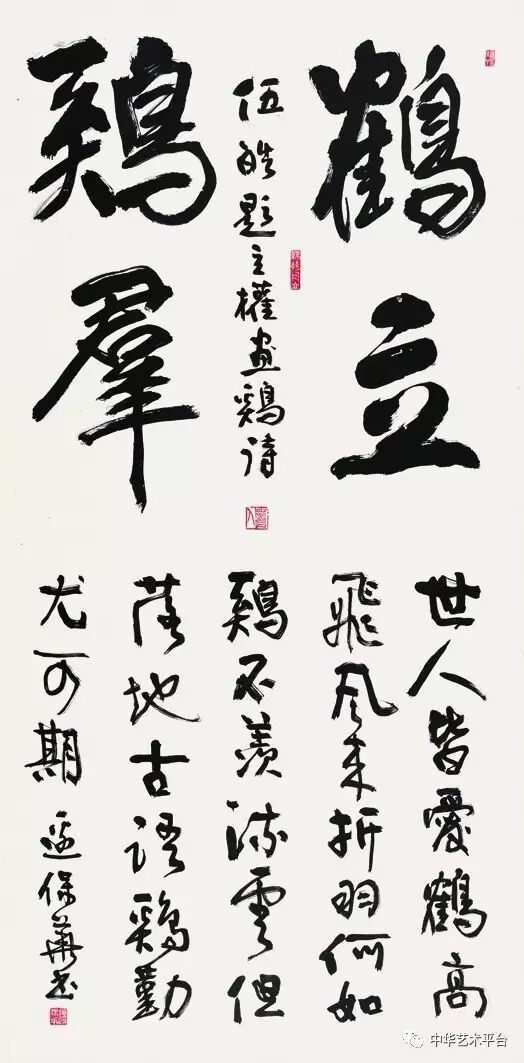 鶴立
鷄羣
伍皓題主權畫鷄詩
世人皆愛鶴高
飛風来折羽何如
鷄不羨流雲但
落地古語鷄勤
尤可期
保華書
中华艺术平台